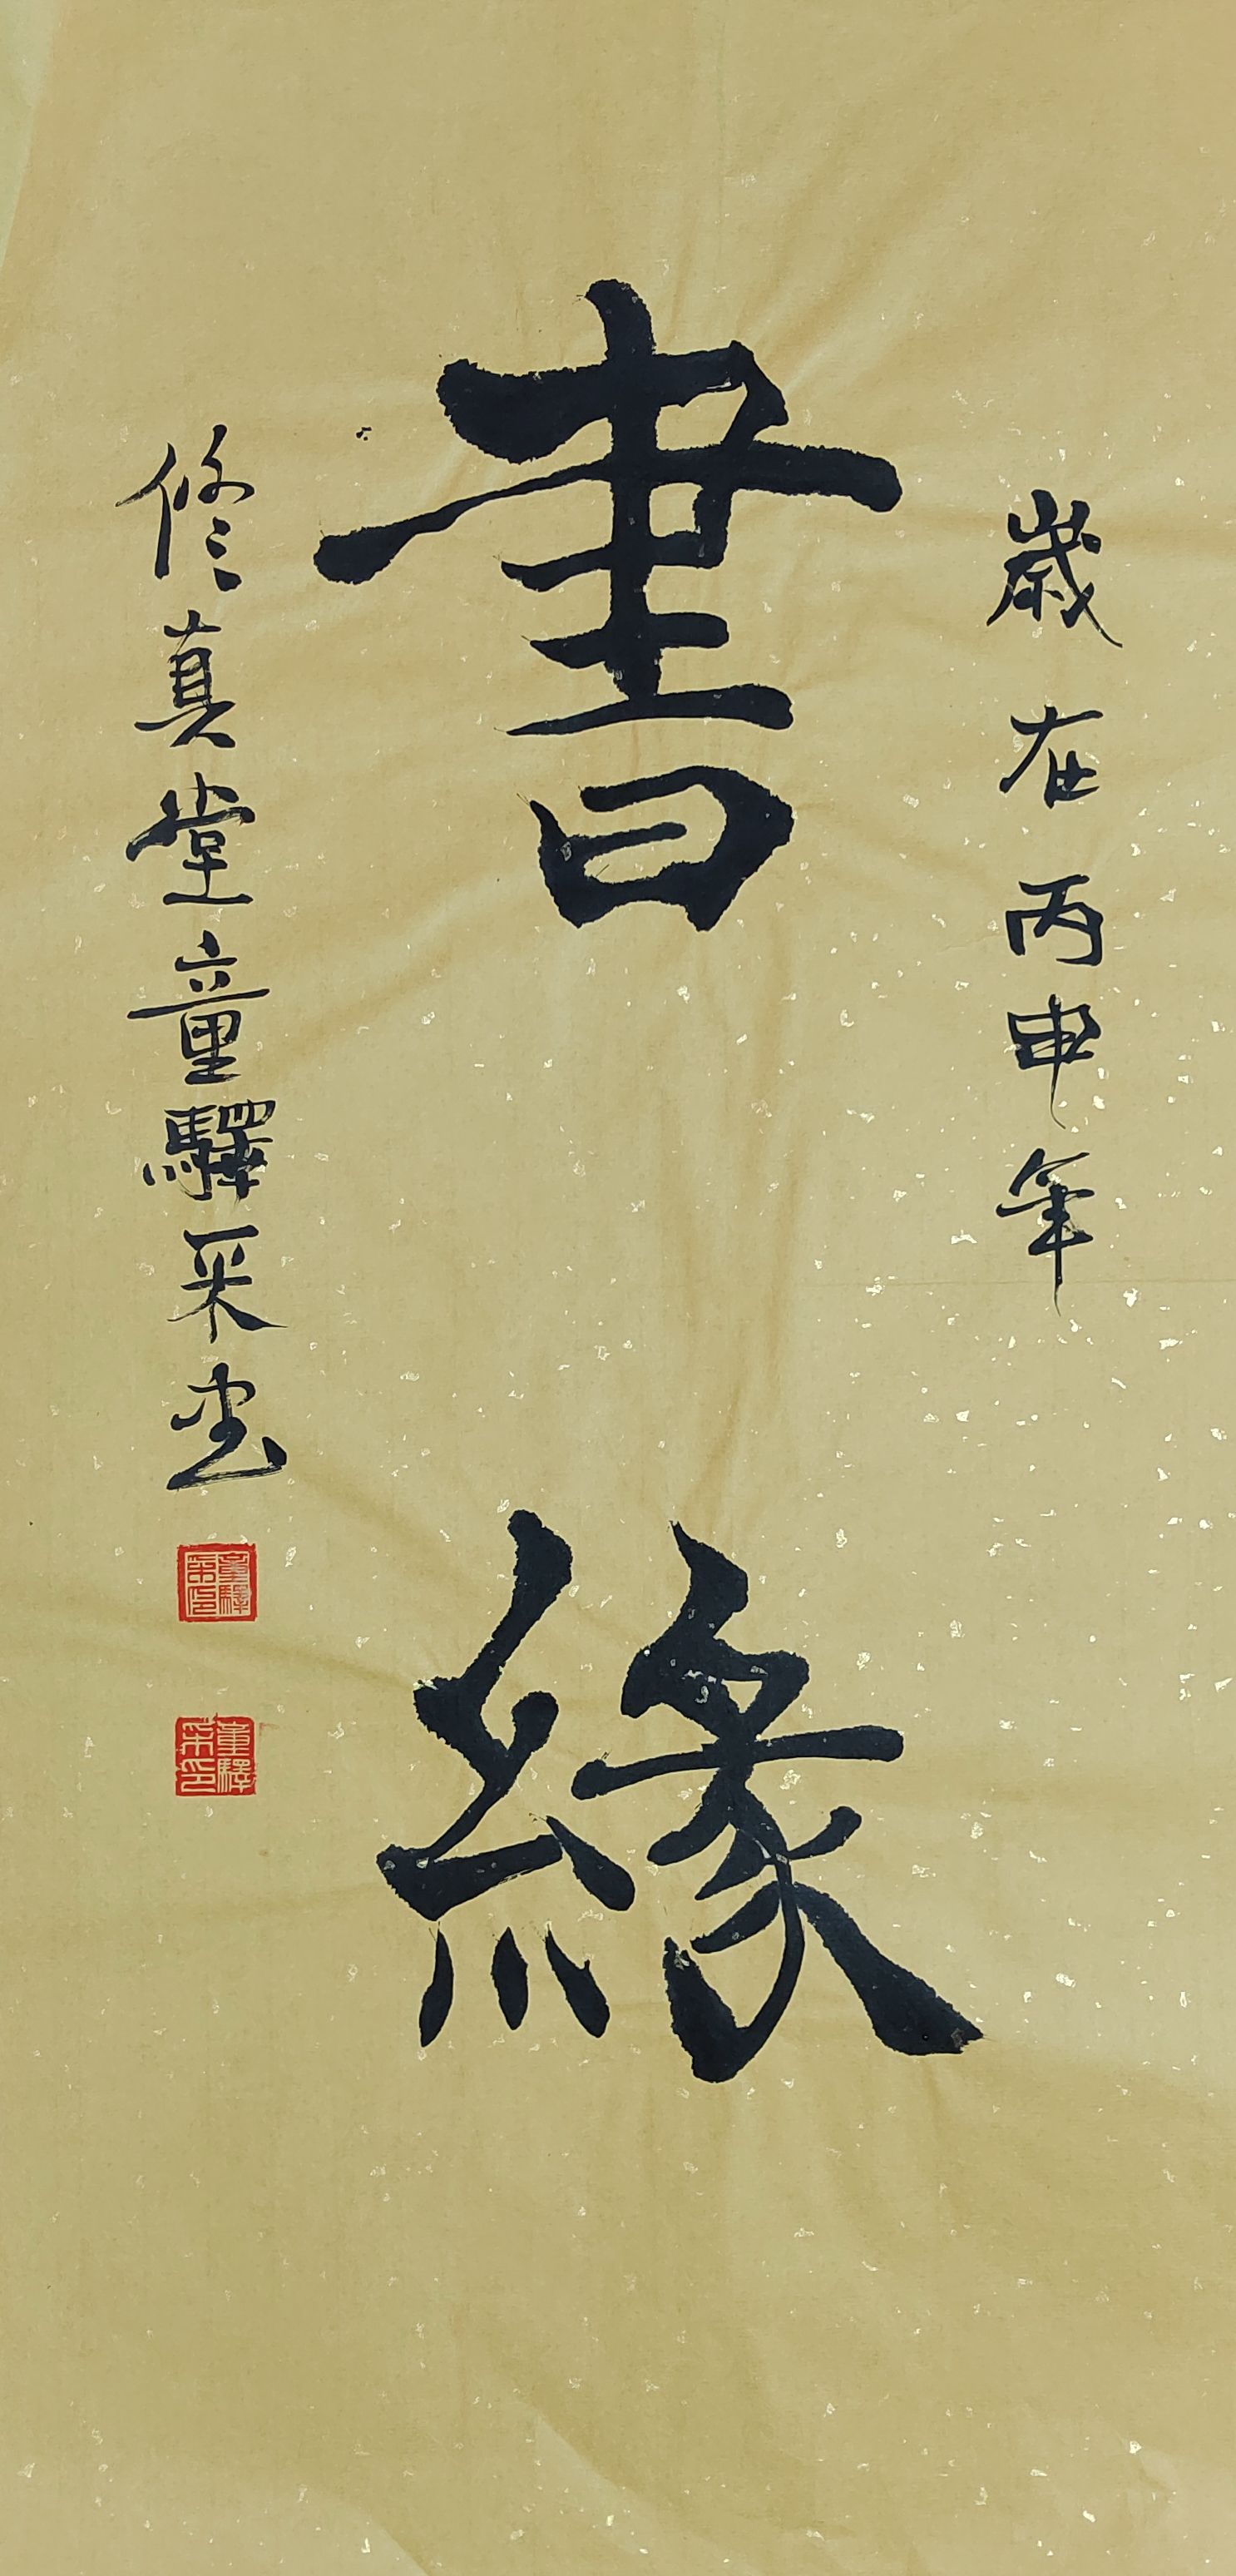 歲在丙申年
書緣
修真堂童驛采书
童驛采印
童驛采印